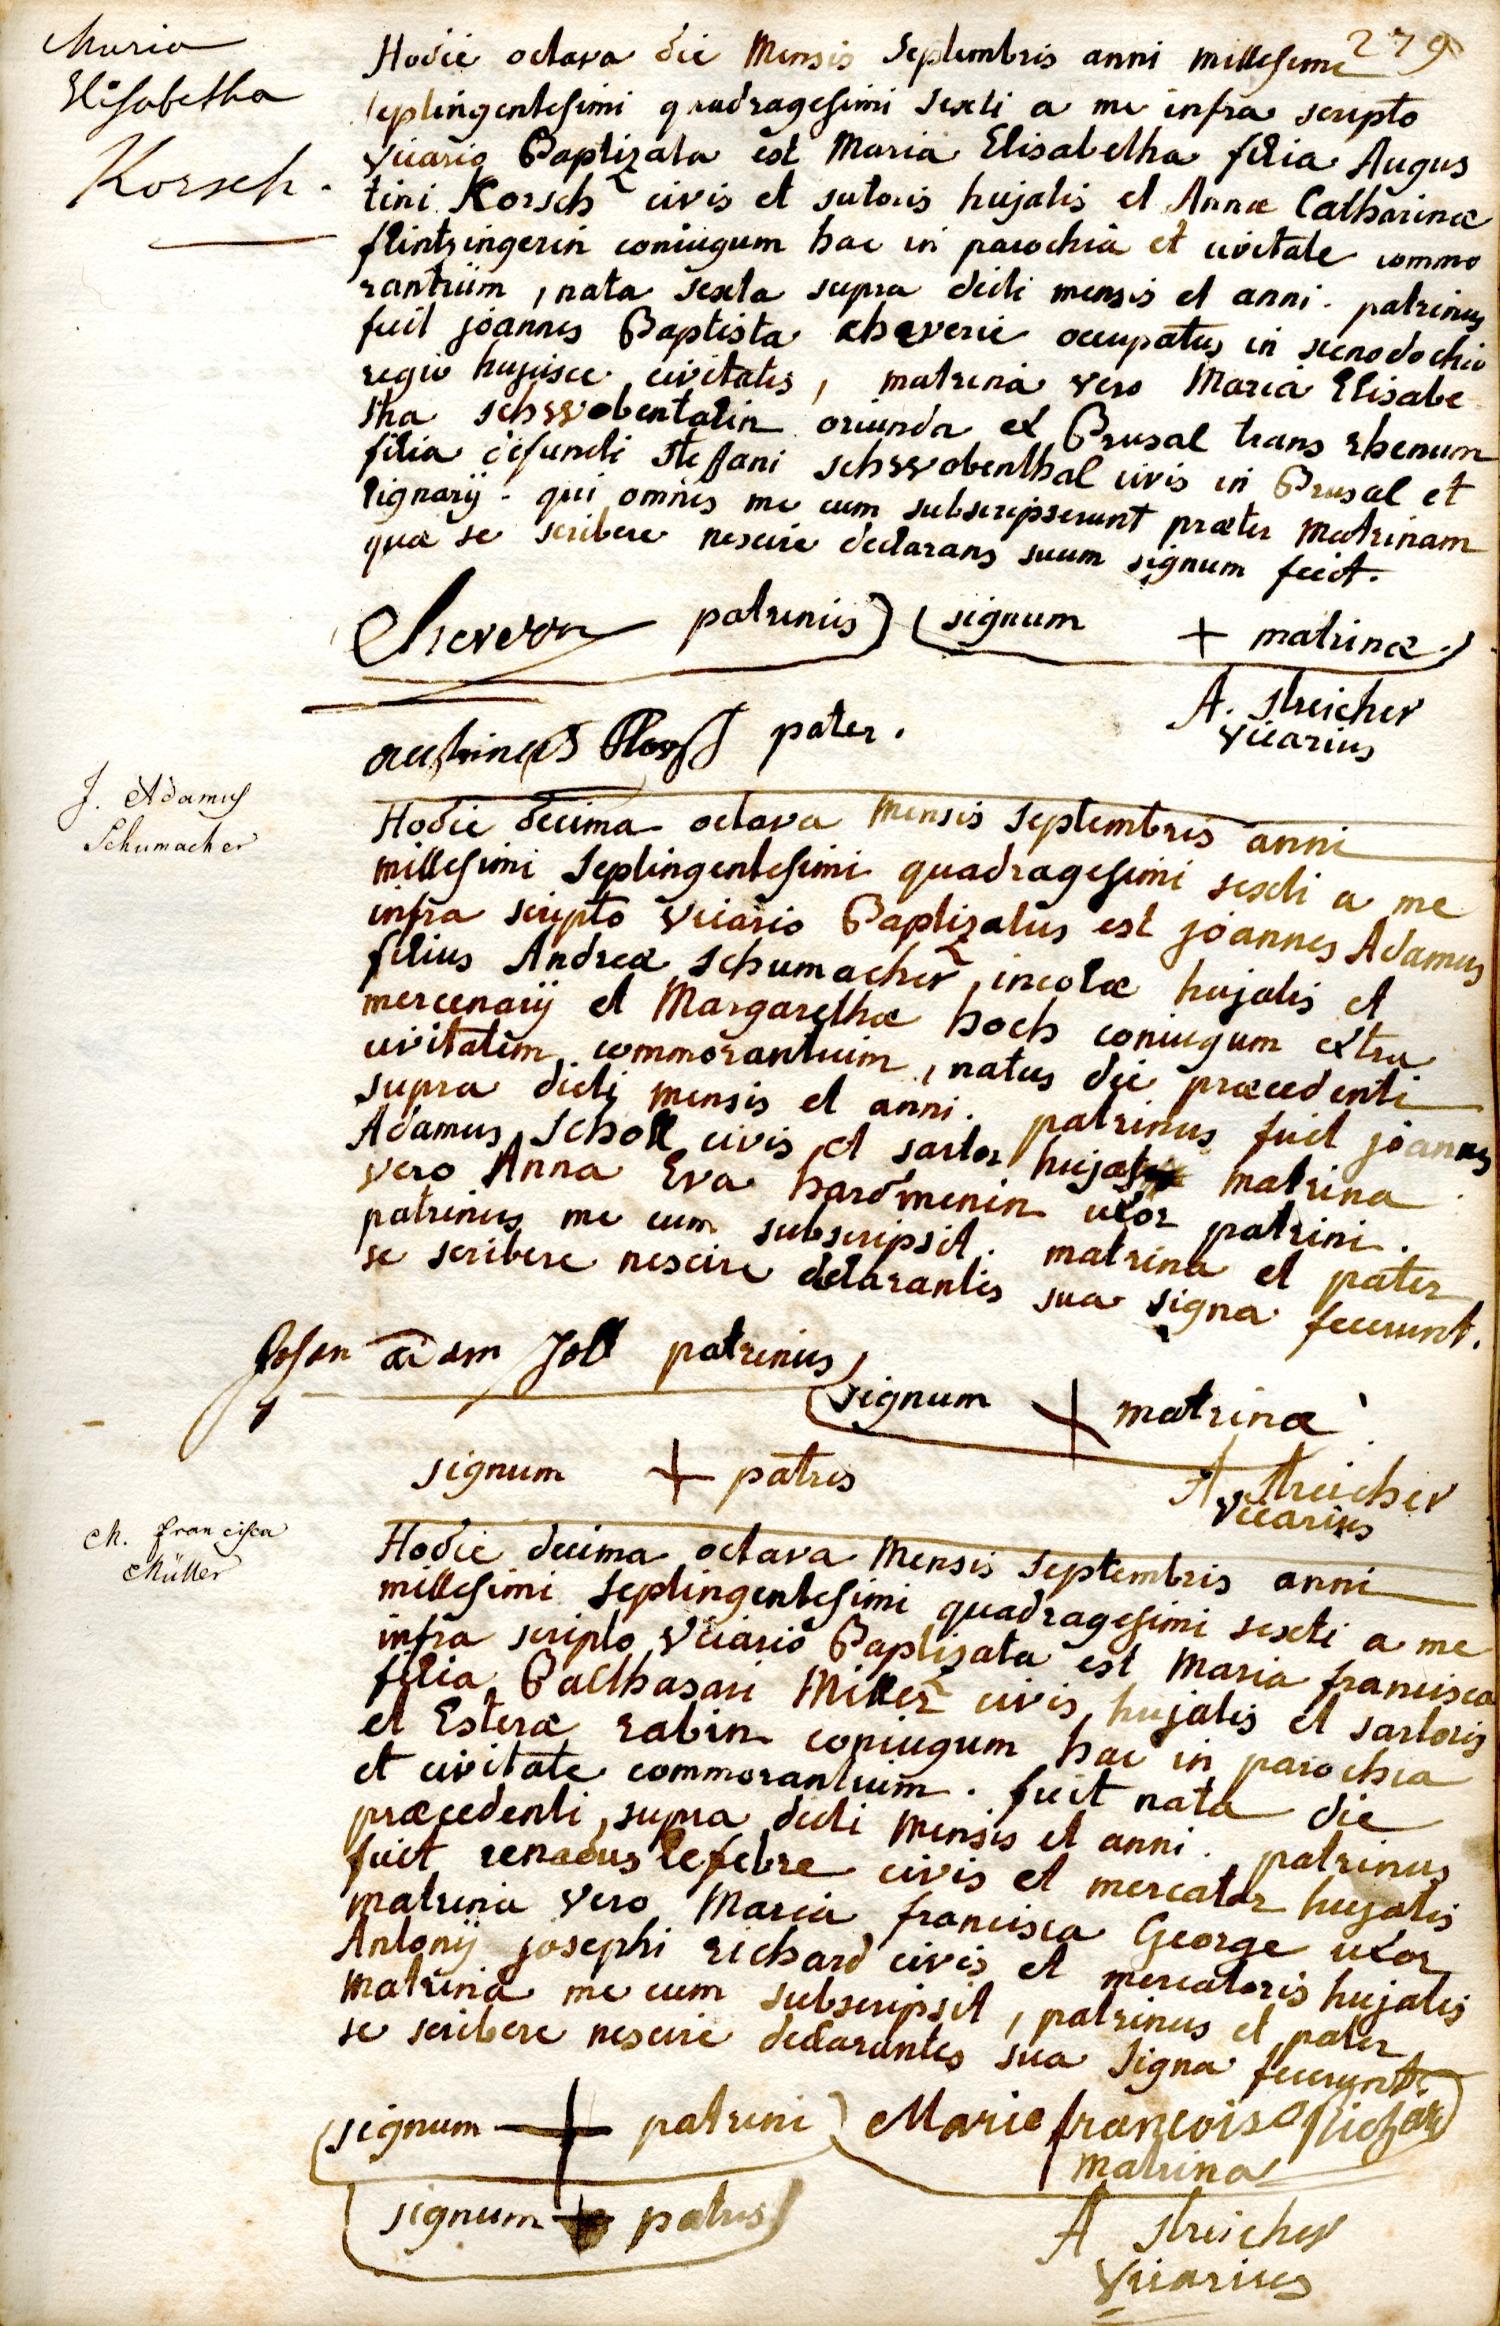 279
Maria
Elisabetha
Korsch.
Hodie octava die Mensis Septembris anni millesimi
septingentesimi quadragesimi sexti a me infra scripto
vicario Baptizata est Maria Elisabetha filia Augus
tini Korsch civis et sutoris hujatis et Annæ Catharinæ
flintzingerin coniugum hac in parochia et civitate commo
rantium, nata sexta supra dicti mensis et anni. patrinus
fuit joannes Baptista occupatus in xenodochio
regio hujusce civitatis, matrina vero Maria Elisabe
tha schwobentalin oriunda ex Brusal trans rhenum
filia defuncti steffani schwobenthal civis in Brusal et
lignarij. qui omnes me cum subscripserunt præter matrinam
quæ se scribere nescire declarans suum signum fecit.
patrinus signum + matrinæ.
A. Streicher
vicarius
pater.
J. Adamus
Schumacher
Hodie decima octava Mensis Septembris anni
millesimi Septingentesimi quadragesimi sexti a me
infra scripto vicario Baptizatus est joannes Adamus
filius Andreæ Schumacher, incolæ hujatis et
mercenarij et Margarethæ hoch coniugum extra
civitatem commorantium, natus die præcedenti
supra dicti mensis et anni. patrinus fuit joannes
Adamus Scholl civis et sartor hujatis matrina
vero Anna Eva hardmenin uxor patrini.
patrinus me cum subscripsit. matrina et pater
se scribere nescire declarantes sua signa fecerunt.
adam Joll patrinus
signum + matrinæ
signum + patris
A Streicher
vicarius
M. francisca
Müller
Hodie decima octava Mensis Septembris anni
millesimi Septingentesimi quadragesimi sexti a me
infra scripto vicario Baptizata est Maria francisca
filia Balthasari Miller civis hujatis et sartoris
et Esteræ rabin coniugum hac in parochia
et civitate commorantium. fuit nata die
præcedenti supra dicti mensis et anni. patrinus
fuit renatus lefebre civis et mercator hujatis
matrina vero Maria francisca George uxor
Antonij josephi richard civis et mercatoris hujatis
matrina me cum subscripsit, patrinus et pater
se scribere nescire declarantes sua Signa fecerunt.
signum + patrini Marie françoise Richar
matrina
signum + patris
A Streicher
vicarius